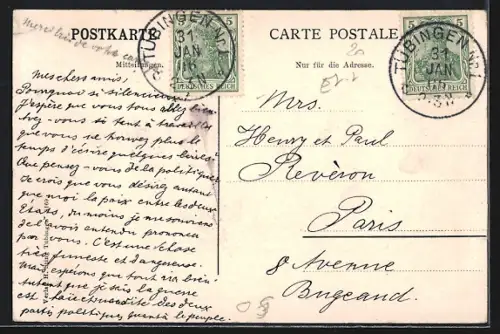 POSTKARTE
CARTE POSTALE
Merci bien de votre
Mitteilungen.
Nur für die Adresse.
TÜBINGEN No 1
31
JAN
5
DEUTSCHES REICH
TÜBINGEN No 1
31
JAN
5
DEUTSCHES REICH
Mes chers amis,
Pourquoi si silencieux?
J'espère que vous allez bien
vous si tant à travailler
que vous ne trouvez plus le
temps d'écrire quelques lignes
Que pensez-vous de la politique?
Je crois que vous désirez autant
que moi la paix entre les deux
États, du moins je me souviens
de l'avoir entendu prononcer
par vous. C'est une chose
très funeste et dangereuse.
Mais espérons que tout ira bien
autant que je sais la
est des deux
partis politiques, quant à le peuple.
Mrs.
Henry et Paul
Revèron
Paris
8 Avenue
Bugeaud.